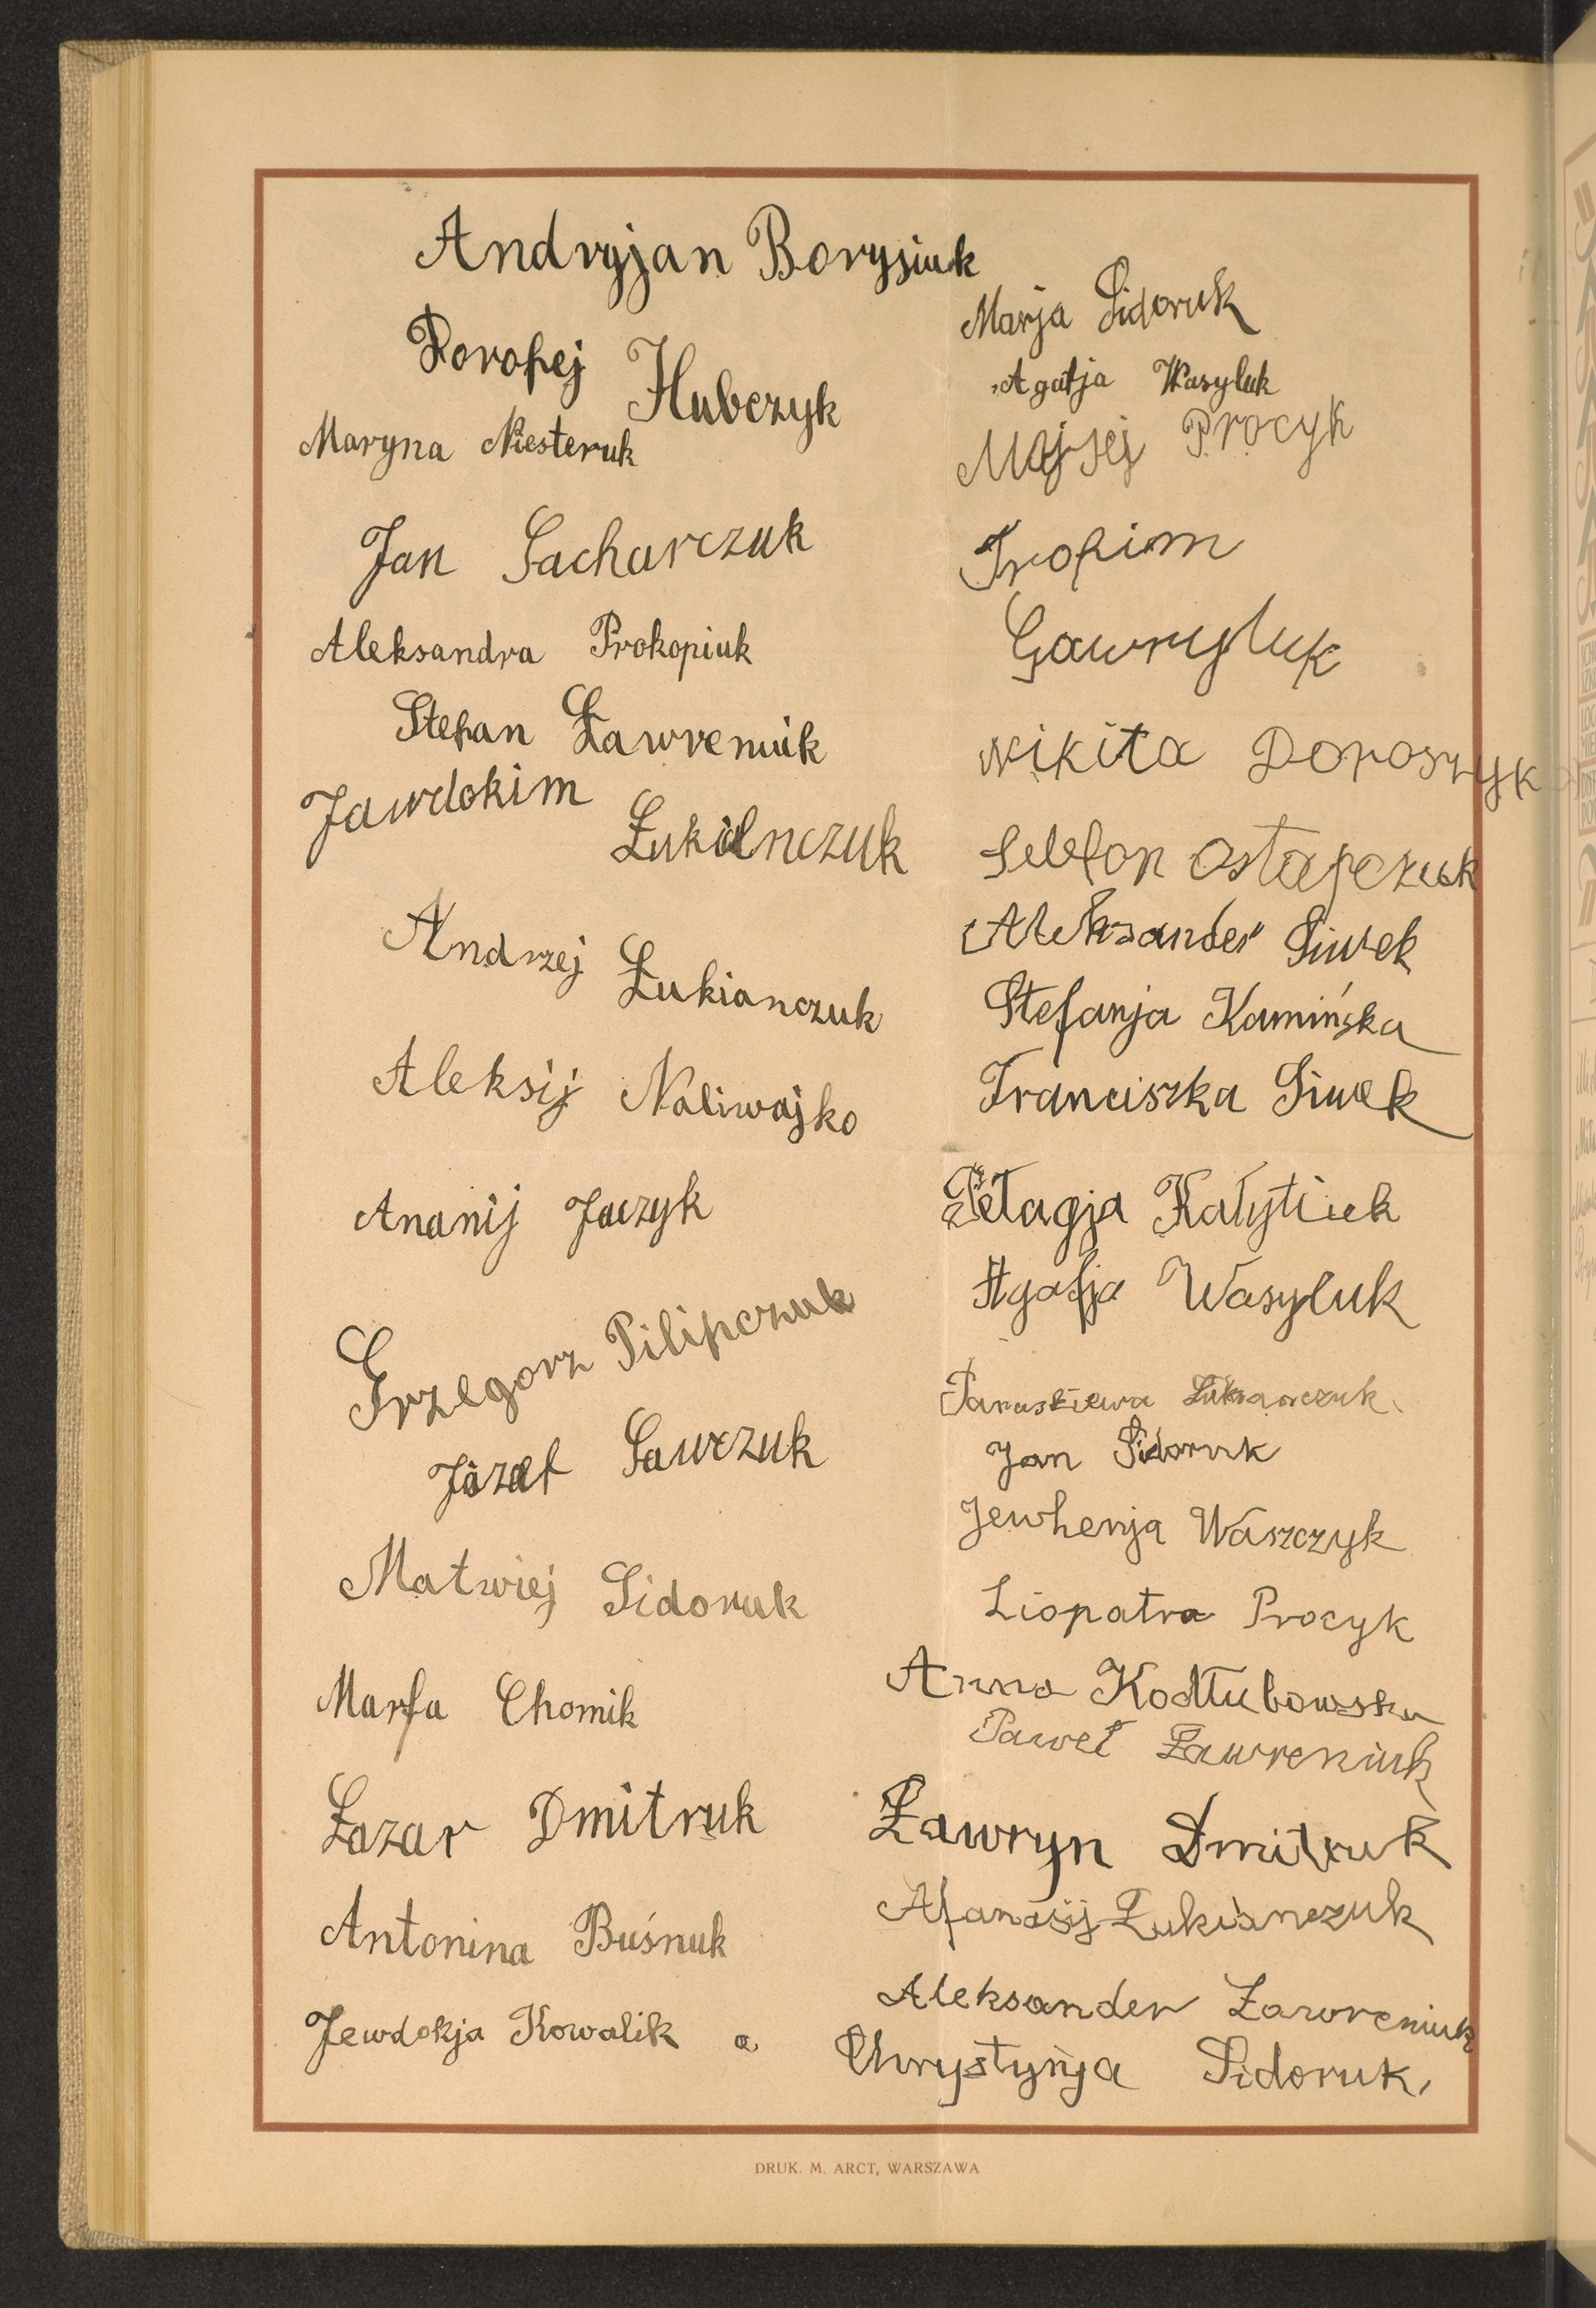 Andryjan Borysiuk
Dorofej Hubczyk
Maryna Niesteruk
Jan Sacharczuk
Aleksandra Prokopiuk
Stefan Ławreniuk
Jawdokim Łukianczuk
Andrzej Łukianczuk
Aleksij Naliwajko
Ananij Jaczyk
Grzegorz Pilipczuk
Józef Sawczuk
Matwiej Sidoruk
Marfa Chomik
Łazar Dmitruk
Antonina Buśnuk
Jewdokja Kowalik a
Marja Sidoruk
Agafja Wasyluk
Mojsej Procyk
Trofim
Gawryluk
Nikita Doroszyk
Ostapczuk
Aleksander Siwek
Stefanja Kamińska
Franciszka Siwek
Pełagja Kałytiuk
Agafja Wasyluk
Paraskiewa Łukianczuk.
Jan Sidoruk
Jewhenja Waszczyk
Liopatra Procyk
Anna Kodłubowska
Paweł Ławreniuk
Ławryn Dmitruk
Afanasij Łukianczuk
Aleksander Ławreniuk
Chrystynja Sidoruk,
DRUK. M. ARCT, WARSZAWA